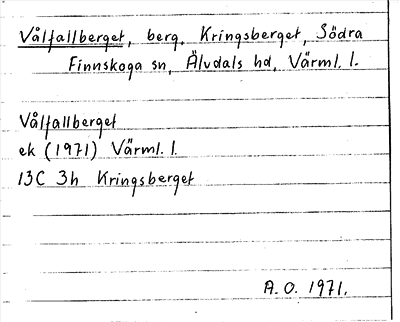 Vålfallberget, berg, Kringsberget, Södra
Finnskoga sn, Älvdals hd, Värml. l.
Vålfallberget
ek (1971) Värml. l.
13C 3h Kringsberget
A.O. 1971.